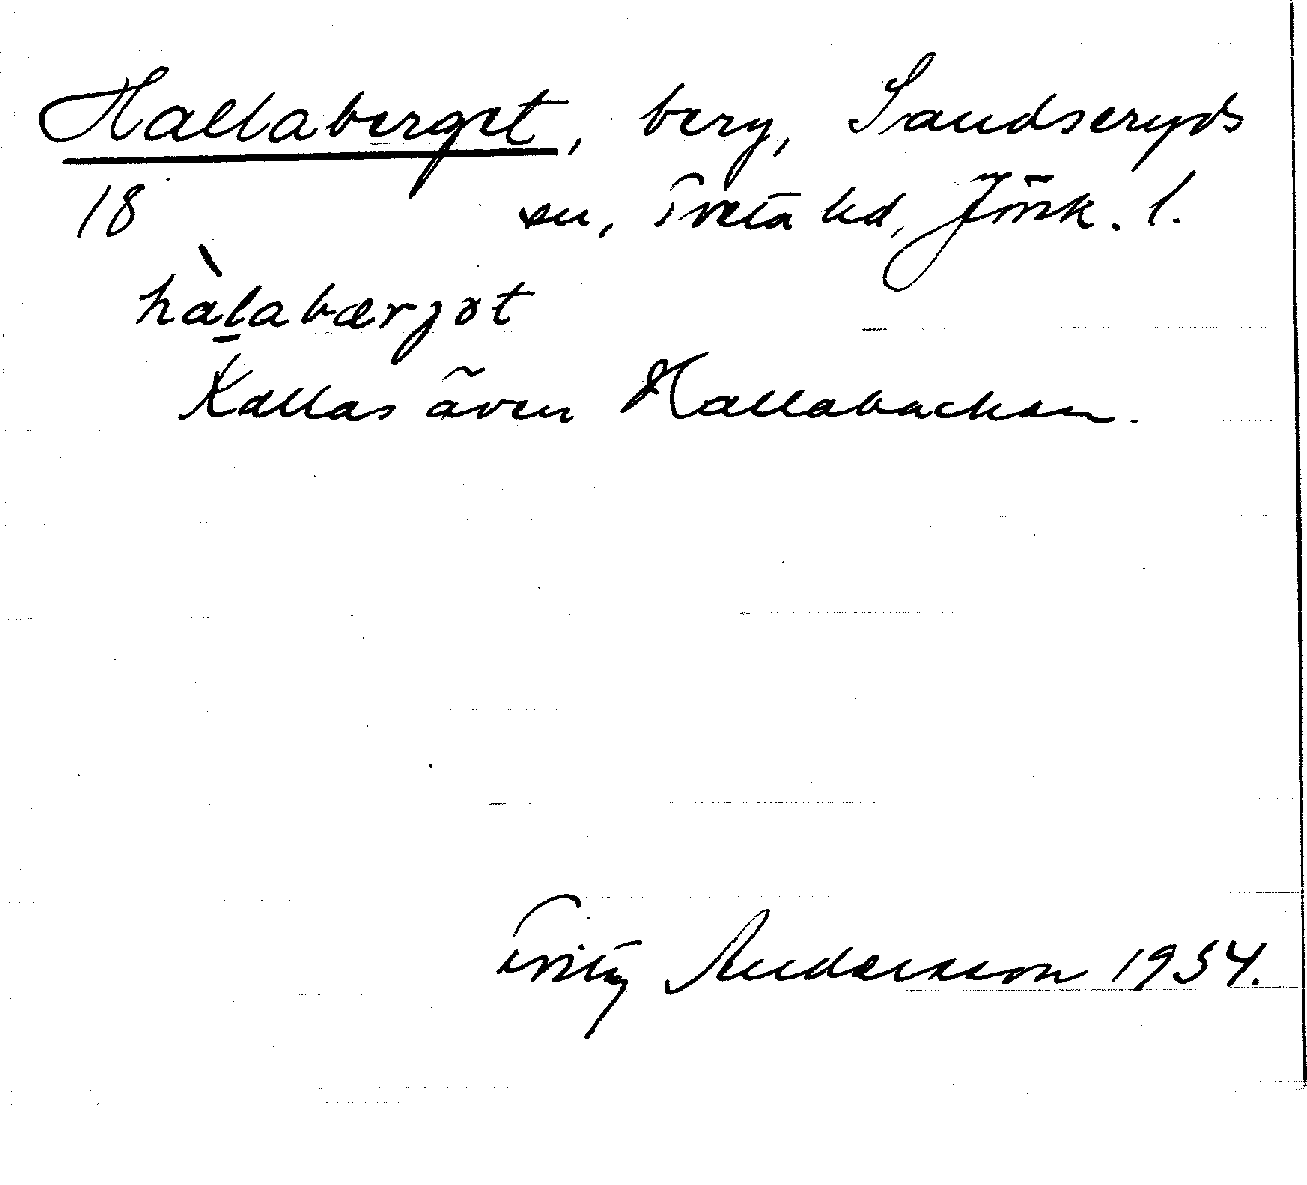 Hallaberget, berg, Sandseryds
18 sn, Tveta hd, Jönk. l.
hàl̠abærjət
Kallas även Hallabacken.
Fritz Andersson 1934.